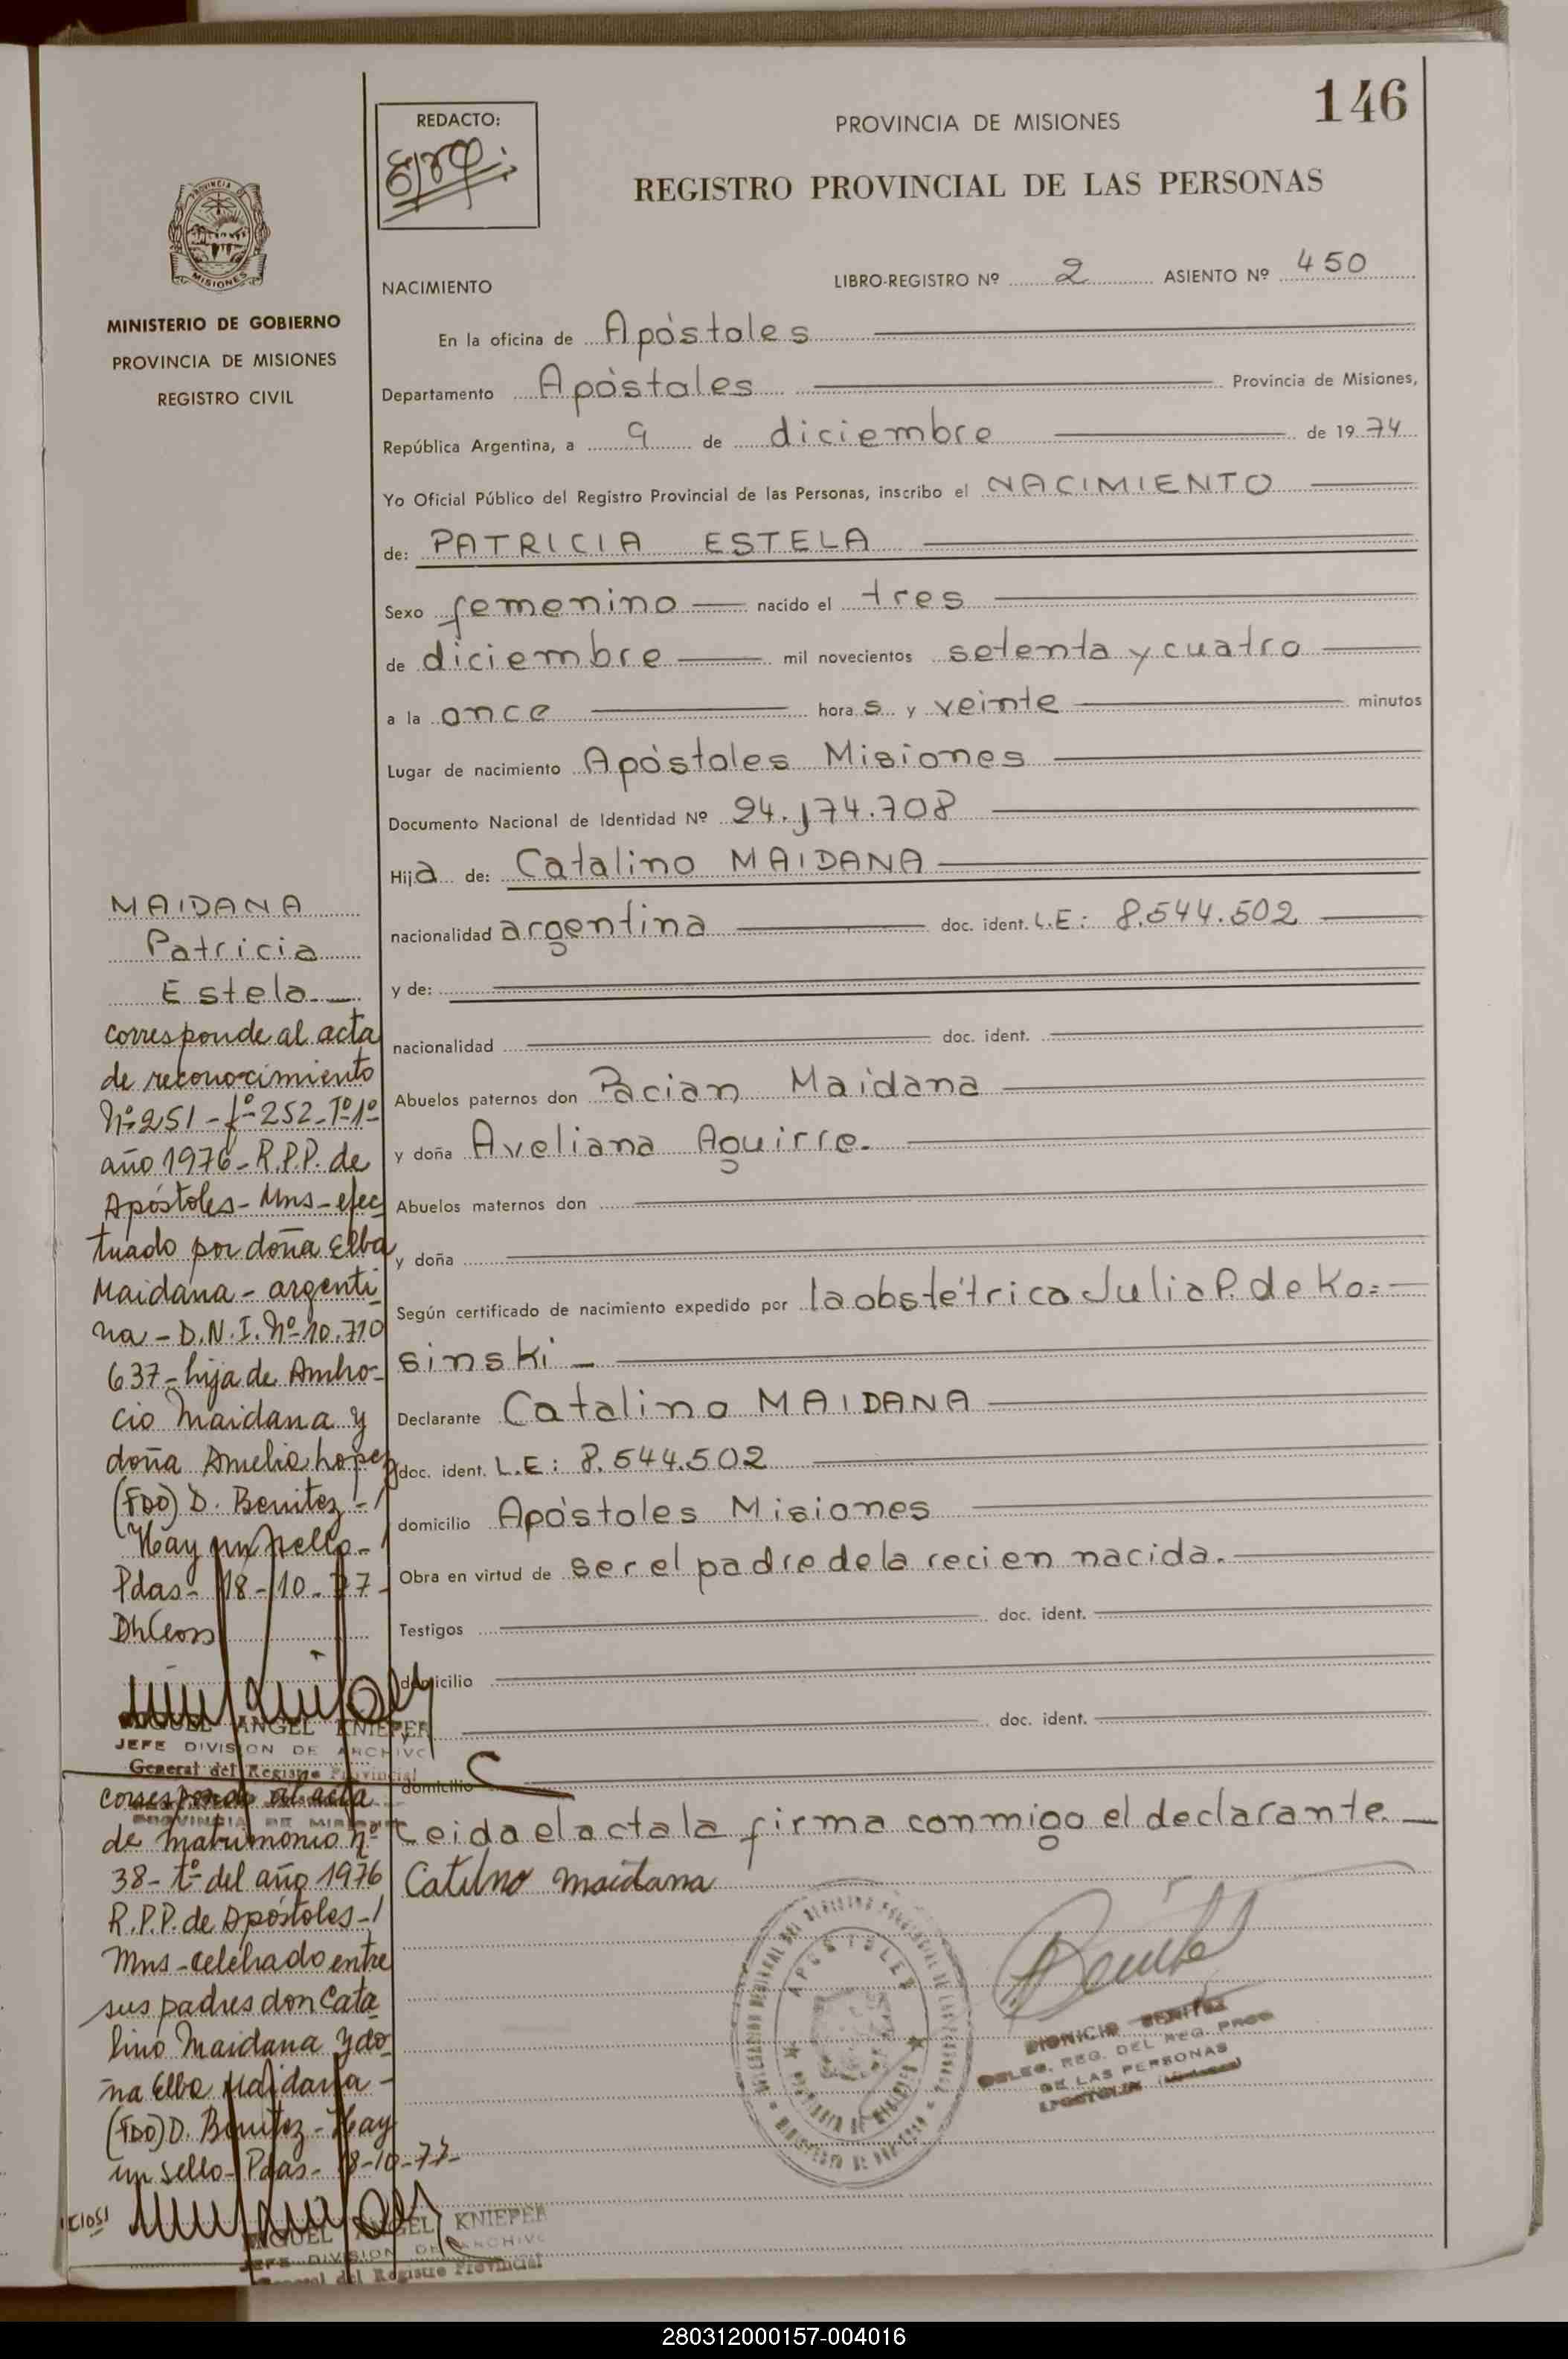 146
REDACTO:
PROVINCIA DE MISIONES
REGISTRO PROVINCIAL DE LAS PERSONAS
MISIONES
MINISTERIO DE GOBIERNO
PROVINCIA DE MISIONES
REGISTRO CIVIL
NACIMIENTO
LIBRO-REGISTRO Nº 2 ASIENTO Nº 450
En la oficina de Apóstoles
Departamento Apóstoles Provincia de Misiones,
República Argentina, a 9 de diciembre de 1974
Yo Oficial Público del Registro Provincial de las Personas, inscribo el NACIMIENTO
de: PATRICIA ESTELA
Sexo femenino nacido el tres
de diciembre mil novecientos setenta y cuatro
a la once hora s y veinte minutos
Lugar de nacimiento Apóstoles Misiones
Documento Nacional de Identidad Nº 24.174.708
Hija de: Catalino MAIDANA
nacionalidad argentina doc. ident. L.E: 8.544.502
y de:
nacionalidad doc. ident.
Abuelos paternos don Pacian Maidana
y doña Aveliana Aguirre.
Abuelos maternos don
y doña
Según certificado de nacimiento expedido por la obstétrica Julia P. de Ko=
sinski -
Declarante Catalino MAIDANA
doc. ident. L.E: 8.544.502
domicilio Apóstoles Misiones
Obra en virtud de ser el padre de la recien nacida.
Testigos doc. ident.
domicilio
doc. ident.
domicilio
Leida el acta la firma conmigo el declarante.
Catilno maidana
APOSTOLES
DIONICIO BENITEZ
DELEG. REG. DEL REG. PROV.
DE LAS PERSONAS
MAIDANA
Patricia
Estela
corresponde al acta
de reconocimiento
Nº 251 - fº 252 - Tº 1º
año 1976 - R.P.P. de
Apóstoles - Mns - efec
tuado por doña Elba
Maidana - argenti
na - D.N.I. Nº 10.710
637 - hija de Ambro-
cio Maidana y
doña Amelia Lopez
(FDO) D. Benitez -
Hay un sello -
Pdas - 18-10-77-
MIGUEL ANGEL KNIEPER
JEFE DIVISION DE ARCHIVO
General del Registro Provincial
corresponde al acta
de matrimonio nº
38 - tº del año 1976
R.P.P. de Apóstoles -
Mns - celebrado entre
sus padres don Cata
lino Maidana y do
ña Elba Maidana -
(FDO) D. Benitez - Hay
un sello - Pdas - 18-10-77-
MIGUEL ANGEL KNIEPER
JEFE DIVISION DE ARCHIVO
General del Registro Provincial
280312000157-004016